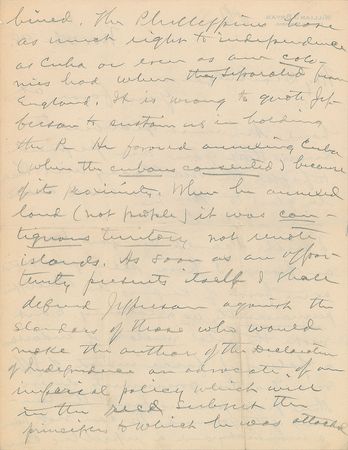 bined. The Phillippines have
as much right to independence
as Cuba or even as our colo-
nies had when they separated from
England. It is wrong to quote Jef-
ferson to sustain us in holding
the P. He favored annexing Cuba
(when the cubans consented) because
of its proximity. When he annexed
land (not people) it was con-
tiguous territory not remote
islands. As soon as an oppor-
tunity presents itself I shall
defend Jefferson against the
slanders of those who would
make the author of the Declaration
of Independence an advocate of an
imperial policy which will
in the subject the
principles to which he was attached